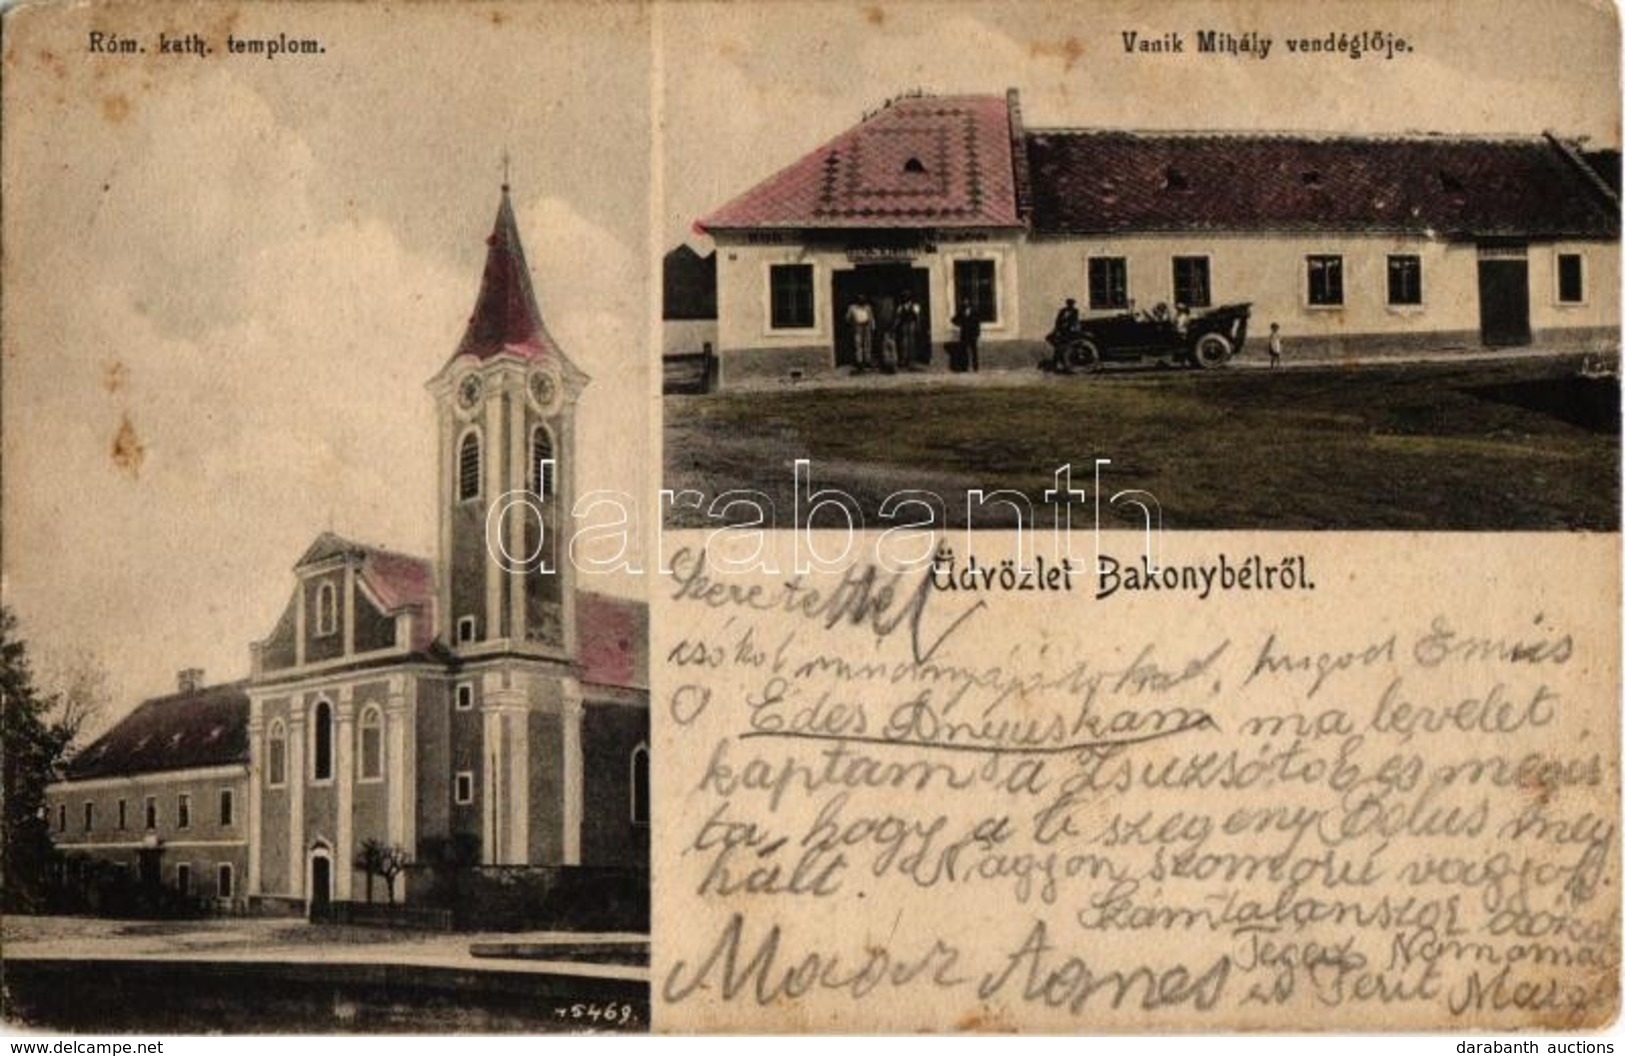 Róm. kath. templom.
Vanik Mihály vendéglője.
darabanth
Üdvözlet Bakonybélről.
Szeretettel
csókol mindnyájatokat, hugod Emiis
Édes Anyuskám ma levelet
kaptam a Zsuzsótól és megir
ta, hogy a ti szegeny Bélus meg
hált. Nagyon szomorú vagyok.
Számtalanszor csókol
Nomomat
Ágnes Ferit
5469.
delcampe.net
darabanth auctions